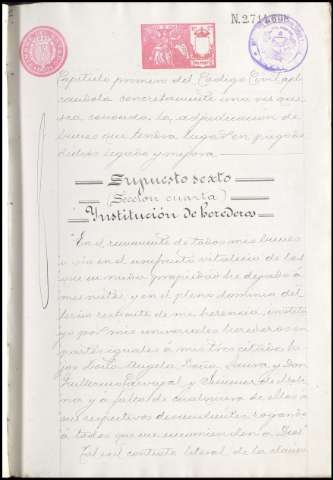 N. 2.711.698
Capítulo primero del Código Civil apli
candola concretamente una vez que
sea conocida la adjudicación de
bienes que tendrá lugar en pago de
dicho legado y mejora.
Supuesto sexto
(Sección cuarta)
"Institución de herederos
"En el remanente de todos mis bienes
ó sea en el usufructo vitalicio de los
que en nuda propiedad he legado á
mis nietos y en el pleno dominio del
tercio restante de mi herencia, institu
yo por mis universales herederos en
partes iguales á mis tres citados hi
jos Doña Angela, Doña Laura y Don
Guillermo Carvajal y
na y á falta de cualquiera de ellos á
sus respectivos descendientes rogando
á todos que me encomienden á Dios"
Tal es el contexto literal de la cláusu